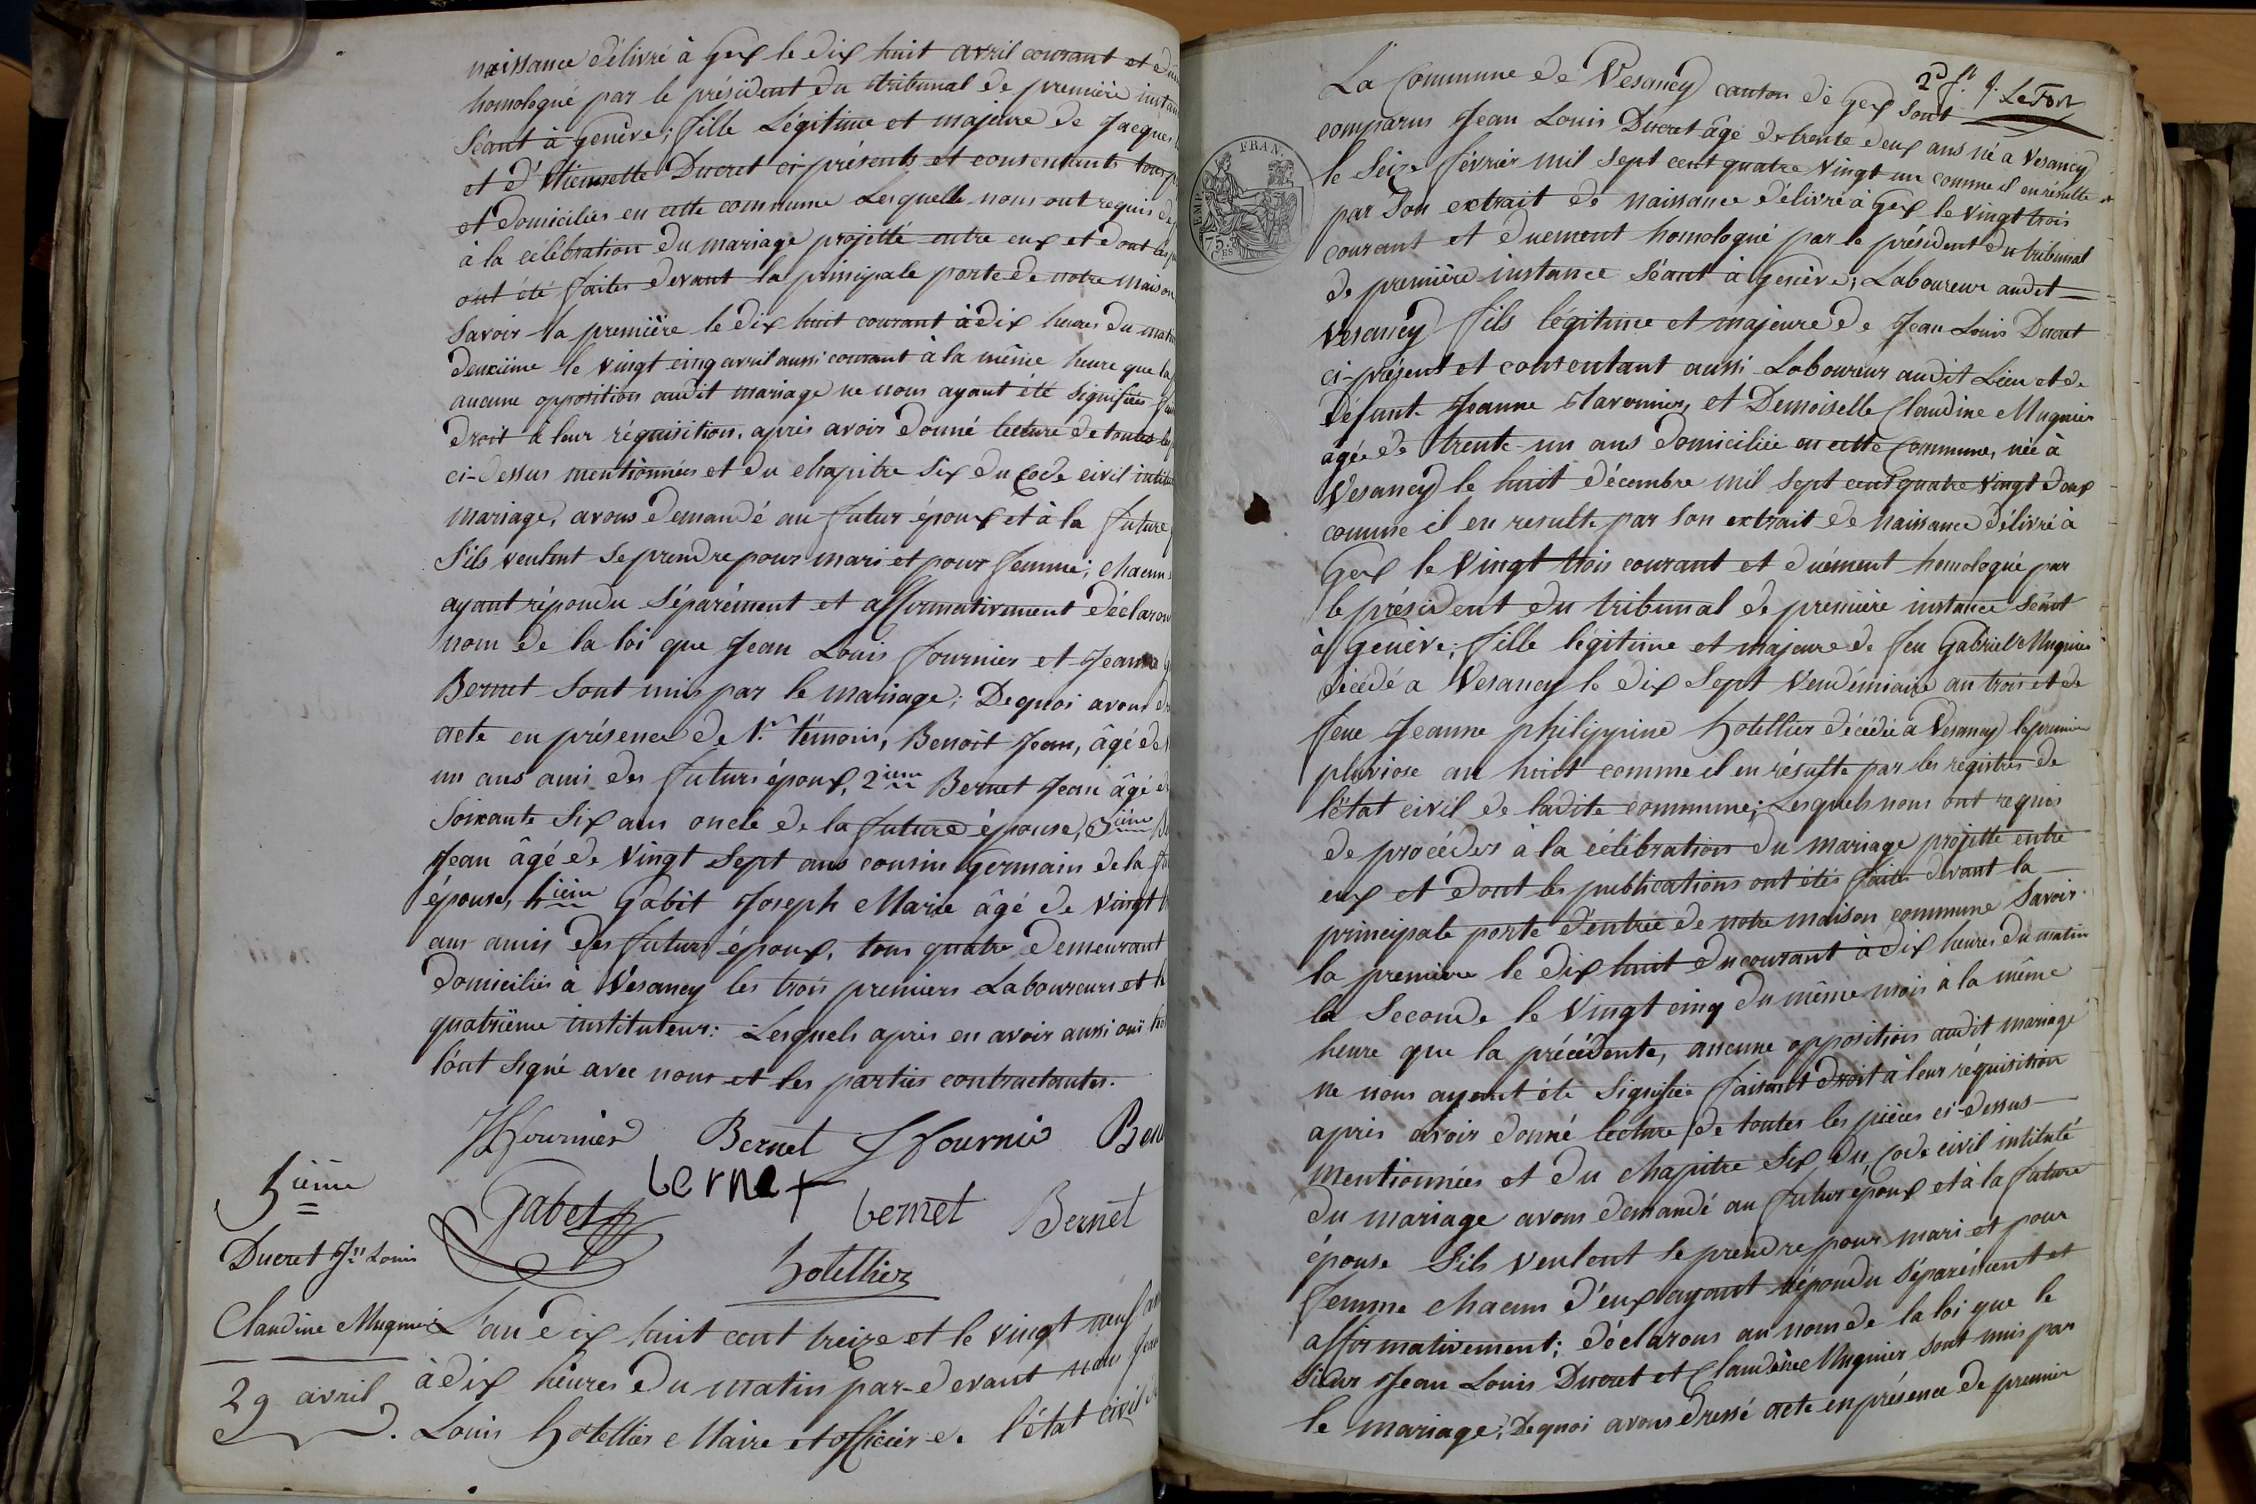 naissance délivré à Gex le dix huit avril courant et
homologué par le président du tribunal de première
Séant à Genève; fille Légitime et majeure de Jacques
et d'Etiennette Ducret ci-présents et consentants tous
et domiciliés en cette commune Lesquelle nous ont requis de
à la célébration du mariage projetté entre eux et dont les
ont été faites devant la principale porte de notre maison
Savoir la première le dix huit courant à dix heures du matin
deuxiéme le vingt cinq avril aussi courant à la même heure que la
aucune opposition audit mariage ne nous ayant été signifiée
droit à leur réquisition, après avoir donné lecture de toutes les
ci-dessus mentionnées et du chapitre Six du Code civil
mariage, avons demandé au futur époux et à la future
S'ils veulent se prendre pour mari et pour femme; chacun
ayant répondu Séparément et affirmativement déclarons
nom de la loi que Jean Louis Fournier et Jeanne
Bernet Sont unis par le mariage; De quoi avons
acte en présence de 1.r témoin, Benoît Jean, âgé de
un ans ami des futurs époux, 2ieme Bernet Jean âgé de
Soixante Six ans oncle de la future épouse, 3ieme
Jean âgé de vingt Sept ans cousin germain de la
épouse, 4ieme Gabet Joseph Marie âgé de vingt
ans amis des futurs époux, tous quatre demeurant
domiciliés à Vesancy les trois premiers Laboureurs et
quatriéme instituteur: Lesquels après en avoir aussi ouï
l'ont signé avec nous et les parties contractantes.
Fournier Bernet Fournier
Gabet bernet bernet Bernet
hotellier
5ieme
Ducret Jn Louis
Claudine Mugnier
29 avril
L'an dix huit cent treize et le vingt neuf
à dix heures du matin par-devant nous
Louis hotellier Maire et officier de l'état civil
2d ft. J. LeFort
La Commune de Vesancy canton de Gex Sont
comparus Jean Louis Ducret âgé de trente deux ans né a Vesancy
le Seize février mil Sept cent quatre vingt un comme il en résulte
par Son extrait de naissance délivré à Gex le vingt trois
courant et duement homologué par le président du tribunal
de première instance Séant à Genève; Laboureur audit
Vesancy fils légitime et majeure de Jean Louis Ducret
ci-présent et consentant aussi Laboureur audit Lieu et de
défunte Jeanne Maronnier, et Demoiselle Claudine Mugnier
agée de trente un ans domiciliée en cette Commune, née à
Vesancy le huit décembre mil Sept cent quatre vingt deux
comme il en resulte par Son extrait de naissance délivré à
Gex le vingt trois courant et duément homologué par
le président du tribunal de première instance Séant
à Genève; fille légitime et majeure de feu Gabriel Mugnier
décédé a Vesancy le dix Sept Vendémiaire an trois et de
feue Jeanne philippine hotellier décédée à Vesancy le premier
pluviose an huit comme il en résulte par les régistres de
l'état civil de ladite commune; Lesquels nous ont requis
de procéder à la célébration du mariage projetté entre
eux et dont les publications ont étés faites devant la
principale porte d'entrée de notre maison commune Savoir
la premiere le dix huit du courant à dix heures du matin
la Seconde le vingt cinq du même mois à la même
heure que la précédente, aucune opposition audit mariage
ne nous ayant été Signifiée faisant droit à leur réquisition
après avoir donné lecture de toutes les pièces ci-dessus
mentionnées et du chapitre Six du, Code civil intitulé
du mariage avons demandé au futur époux et à la future
épouse S'ils veulent se prendre pour mari et pour
femme chacun d'eux ayant répondu Séparément et
affirmativement; déclarons au nom de la loi que le
Sieur Jean Louis Ducret et Claudine Mugnier sont unis par
le mariage; De quoi avons dressé acte en présence de premier
FRAN.
75.